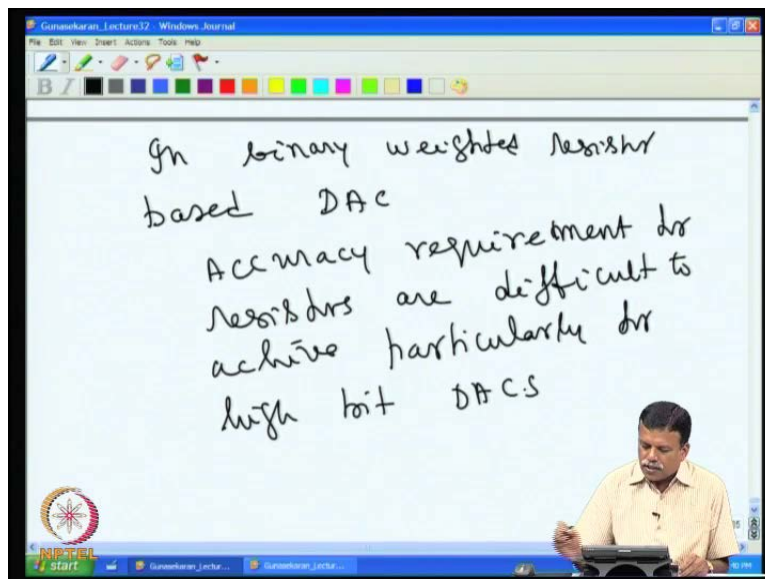 Gunasekaran_Lecture32 - Windows Journal
File Edit View Insert Actions Tools Help
B I
In binary weighted resistor
based DAC
Accuracy requirement for
resistors are difficult to
achive particularly for
high bit DACs
NPTEL
start Gunasekaran_Lectur... Gunasekaran_Lectur...